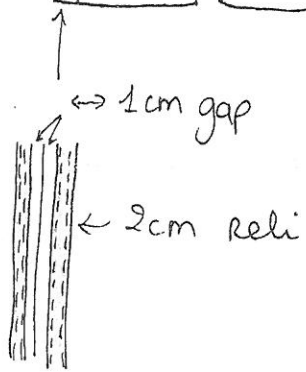 ↔ 1cm gap
← 2cm reli